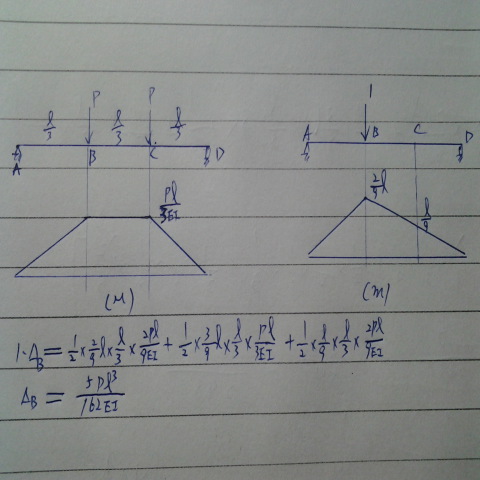 P P
l/3 l/3 l/3
A B C D
A
Pl/3EI
(M)
1
A B C D
2/9 l
l/9
(m)
1·Δ_B = 1/2 × 2/9 l × l/3 × 2Pl/9EI + 1/2 × 3/9 l × l/3 × Pl/3EI + 1/2 × l/9 × l/3 × 2Pl/9EI
Δ_B = 5Pl³/162EI